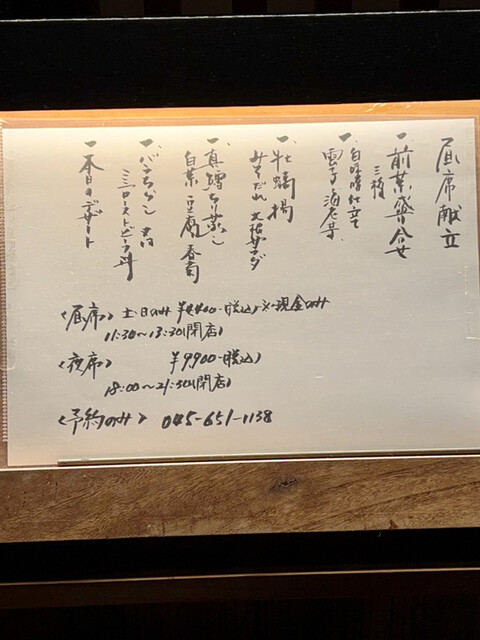 昼席献立
一、前菜盛合せ
三種
一、白味噌仕立て
雲子、海老芋、
一、牡蠣揚
みぞだれ 大根サラダ
一、真鱈ちり蒸し
白菜、豆腐、春菊
一、バラちらし 又は
ミニローストビーフ丼
一、本日のデザート
<昼席> 土・日のみ ¥4400-(税込) ※現金のみ
11:30〜13:30(閉店)
<夜席> ¥9900-(税込)
18:00〜21:30(閉店)
<予約のみ> 045-651-1138